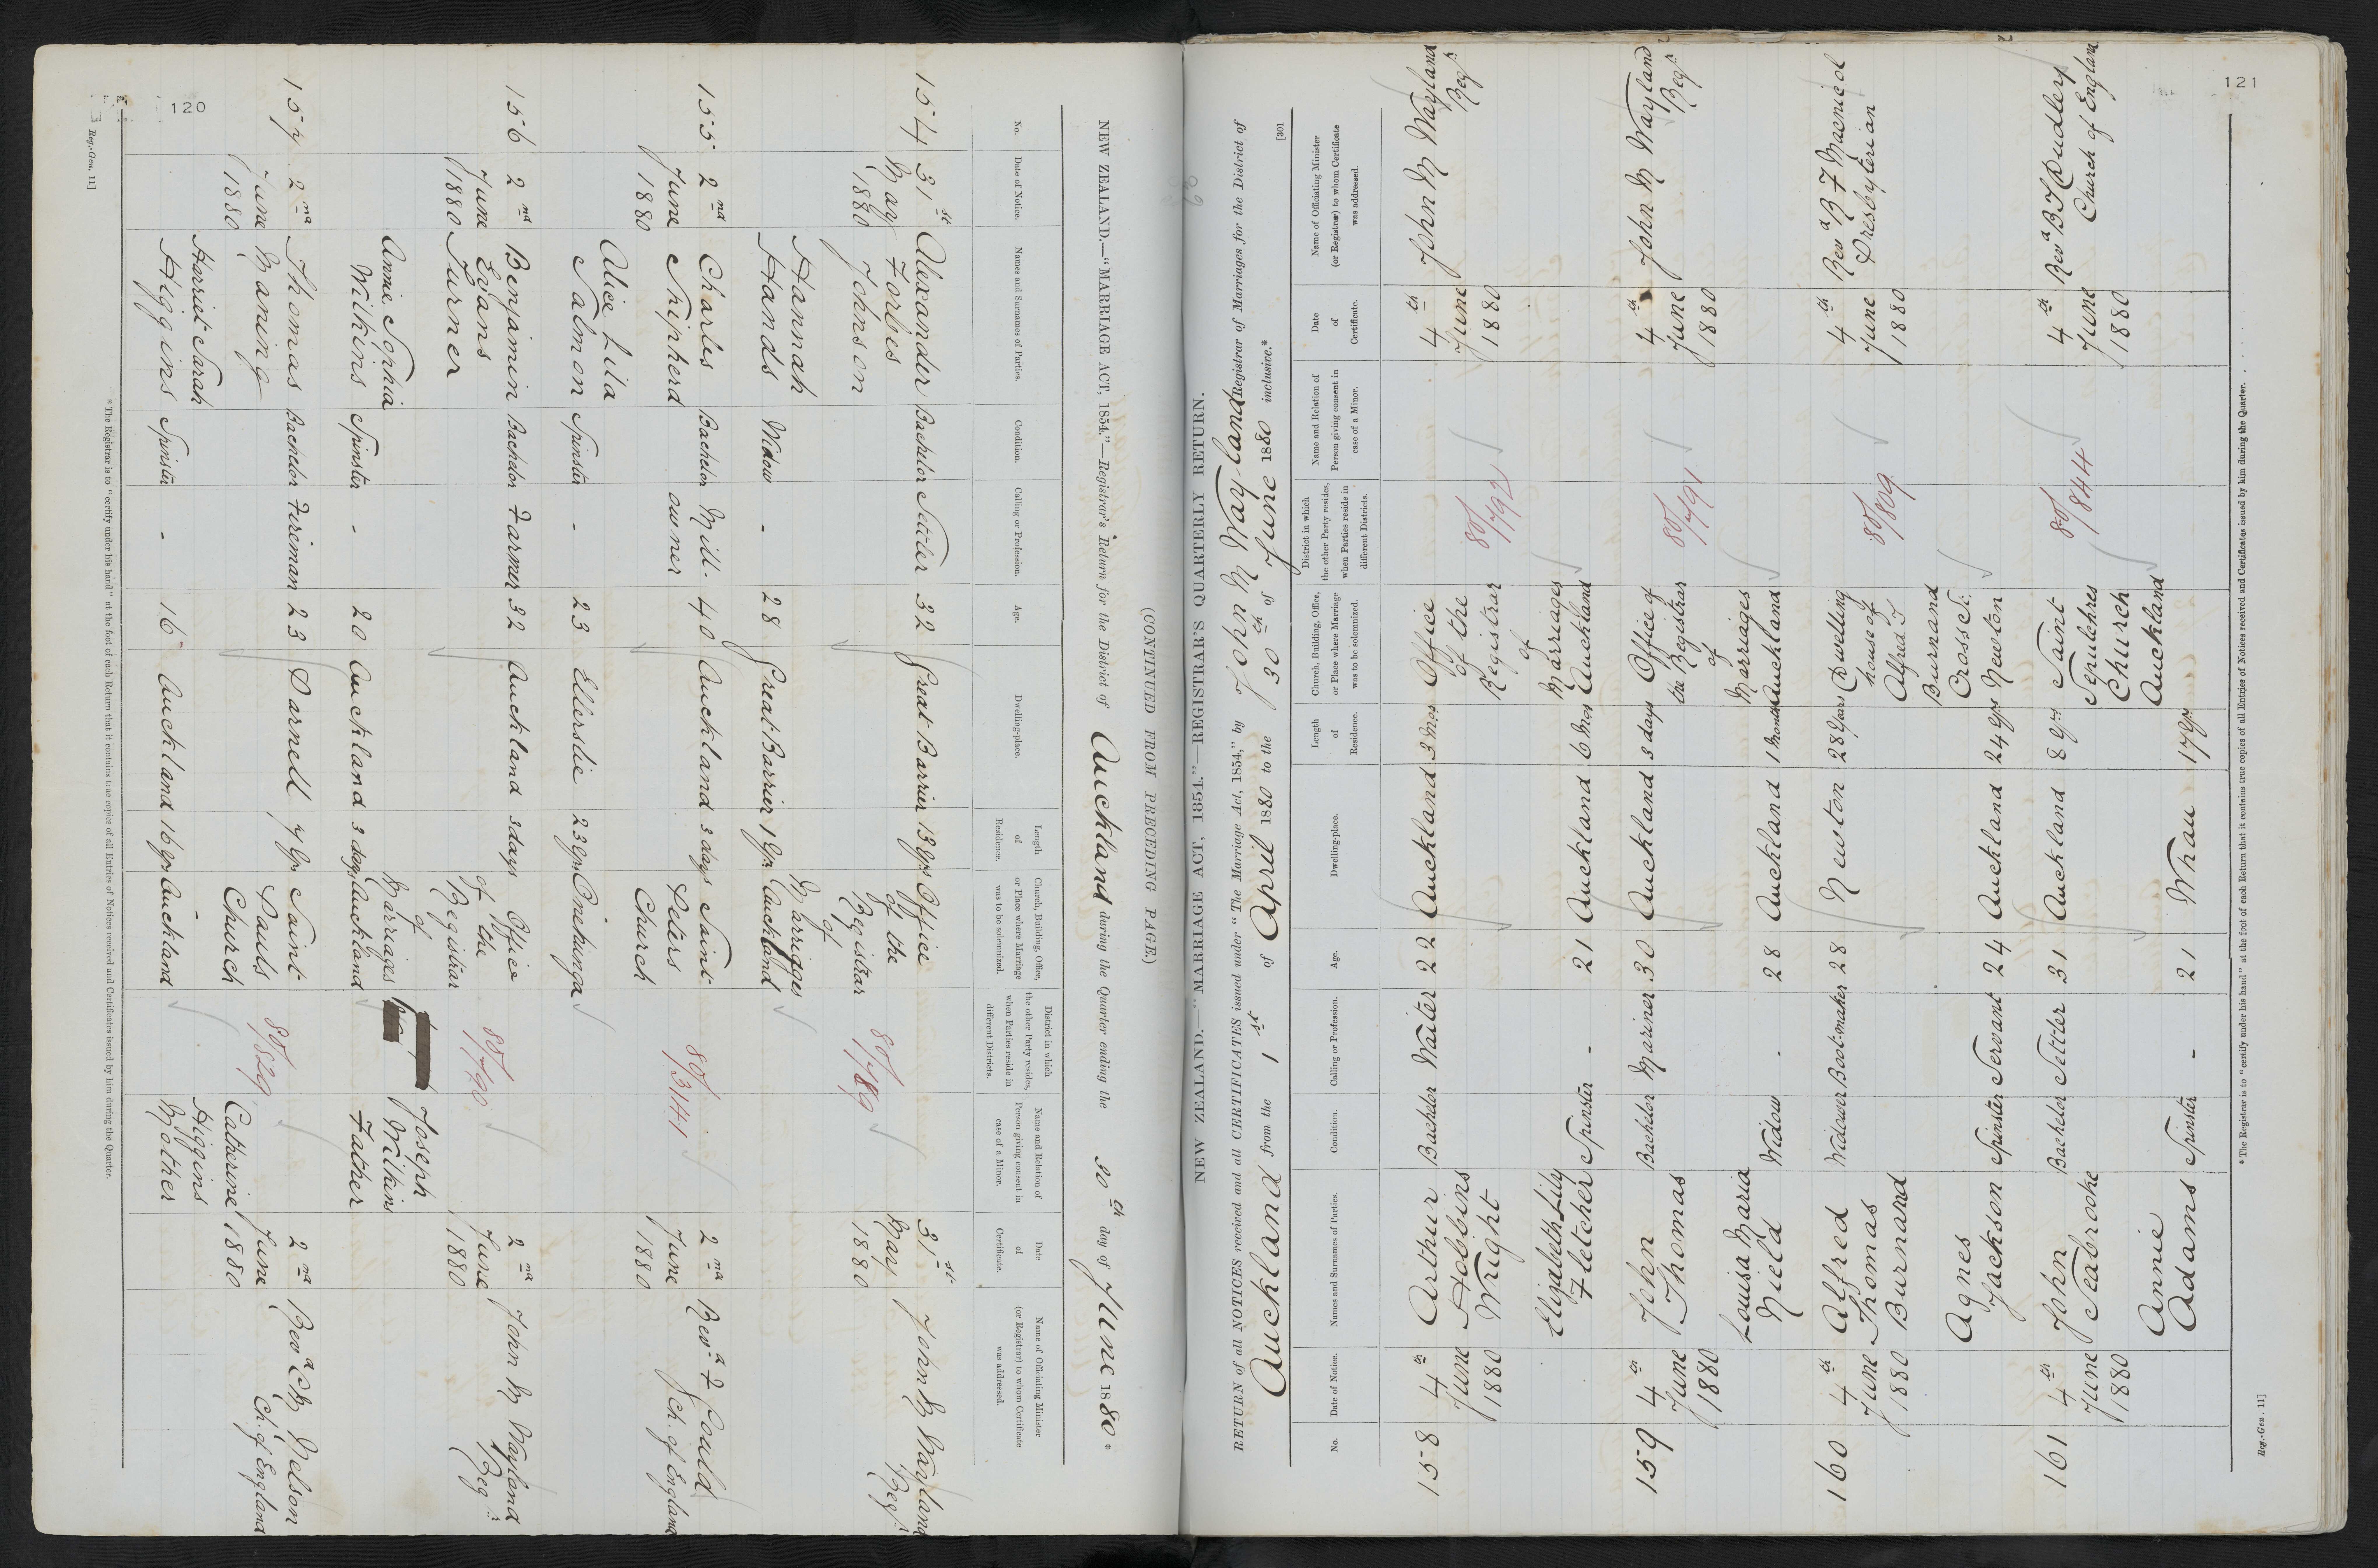 120
Reg.-Gen. 11]
(CONTINUED FROM PRECEDING PAGE.)
NEW ZEALAND.—"MARRIAGE ACT, 1854."—Registrar's Return for the District of Auckland during the Quarter ending the 30th day of June 1880*
No.
Date of Notice.
Names and Surnames of Parties.
Condition.
Calling or Profession.
Age.
Dwelling-place.
Length of Residence.
Church, Building, Office, or Place where Marriage was to be solemnized.
District in which the other Party resides, when Parties reside in different Districts.
Name and Relation of Person giving consent in case of a Minor.
Date of Certificate.
Name of Officiating Minister (or Registrar) to whom Certificate was addressed.
154 31st May 1880
Alexander Forbes Johnson Bachelor Settler 32 Great Barrier 13 yrs
Hannah Hands Widow - 28 Great Barrier 1 yr
Office of the Registrar of Marriages Auckland
80/789
31st May 1880
John M Wayland Regr.
155 2nd June 1880
Charles Shipherd Bachelor Mill-owner 40 Auckland 3 days
Alice Lila Salmon Spinster - 23 Ellerslie 23 yrs
Saint Peters Church Onehunga
80/3141
2nd June 1880
Revd. F Gould Ch. of England
156 2nd June 1880
Benjamin Evans Turner Bachelor Farmer 32 Auckland 3 days
Annie Sophia Wilkins Spinster - 20 Auckland 3 days
Office of the Registrar of Marriages Auckland
80/790
Joseph Wilkins Father
2nd June 1880
John M Wayland Regr.
157 2nd June 1880
Thomas Maning Bachelor Fireman 23 Parnell 7 yrs
Harriet Sarah Higgins Spinster - 16 Auckland 16 yrs
Saint Pauls Church Auckland
80/829
Catherine Higgins Mother
2nd June 1880
Revd. C M Nelson Ch. of England
*The Registrar is to "certify under his hand" at the foot of each Return that it contains true copies of all Entries of Notices received and Certificates issued by him during the Quarter.
121
[301
NEW ZEALAND.—"MARRIAGE ACT, 1854."—REGISTRAR'S QUARTERLY RETURN.
RETURN of all NOTICES received and all CERTIFICATES issued under "The Marriage Act, 1854," by John M Wayland Registrar of Marriages for the District of
Auckland from the 1st of April 1880 to the 30th of June 1880 inclusive.*
No.
Date of Notice.
Names and Surnames of Parties.
Condition.
Calling or Profession.
Age.
Dwelling-place.
Length of Residence.
Church, Building, Office, or Place where Marriage was to be solemnized.
District in which the other Party resides, when Parties reside in different Districts.
Name and Relation of Person giving consent in case of a Minor.
Date of Certificate.
Name of Officiating Minister (or Registrar) to whom Certificate was addressed.
158 4th June 1880
Arthur Hobbins Wright Bachelor Waiter 22 Auckland 3 mos
Elizabeth Lily Fletcher Spinster - 21 Auckland 6 mos
Office of the Registrar of Marriages Auckland
80/792
4th June 1880
John M Wayland Regr.
159 4th June 1880
John Thomas Bachelor Mariner 30 Auckland 3 days
Louisa Maria Nield Widow - 28 Auckland 1 month
Office of the Registrar of Marriages Auckland
80/791
4th June 1880
John M Wayland Regr.
160 4th June 1880
Alfred Thomas Burnand Widower Boot-maker 28 Newton 28 years
Agnes Jackson Spinster Servant 24 Auckland 24 yrs
Dwelling house of Alfred T Burnand Cross St. Newton
80/809
4th June 1880
Revd B F Macnicol Presbyterian
161 4th June 1880
John Seabrooke Bachelor Settler 31 Auckland 8 yrs
Annie Adams Spinster - 21 Whau 17 yrs
Saint Sepulchres Church Auckland
80/844
4th June 1880
Revd B. T. Dudley Church of England
*The Registrar is to "certify under his hand" at the foot of each Return that it contains true copies of all Entries of Notices received and Certificates issued by him during the Quarter.
Reg.-Gen. 11]